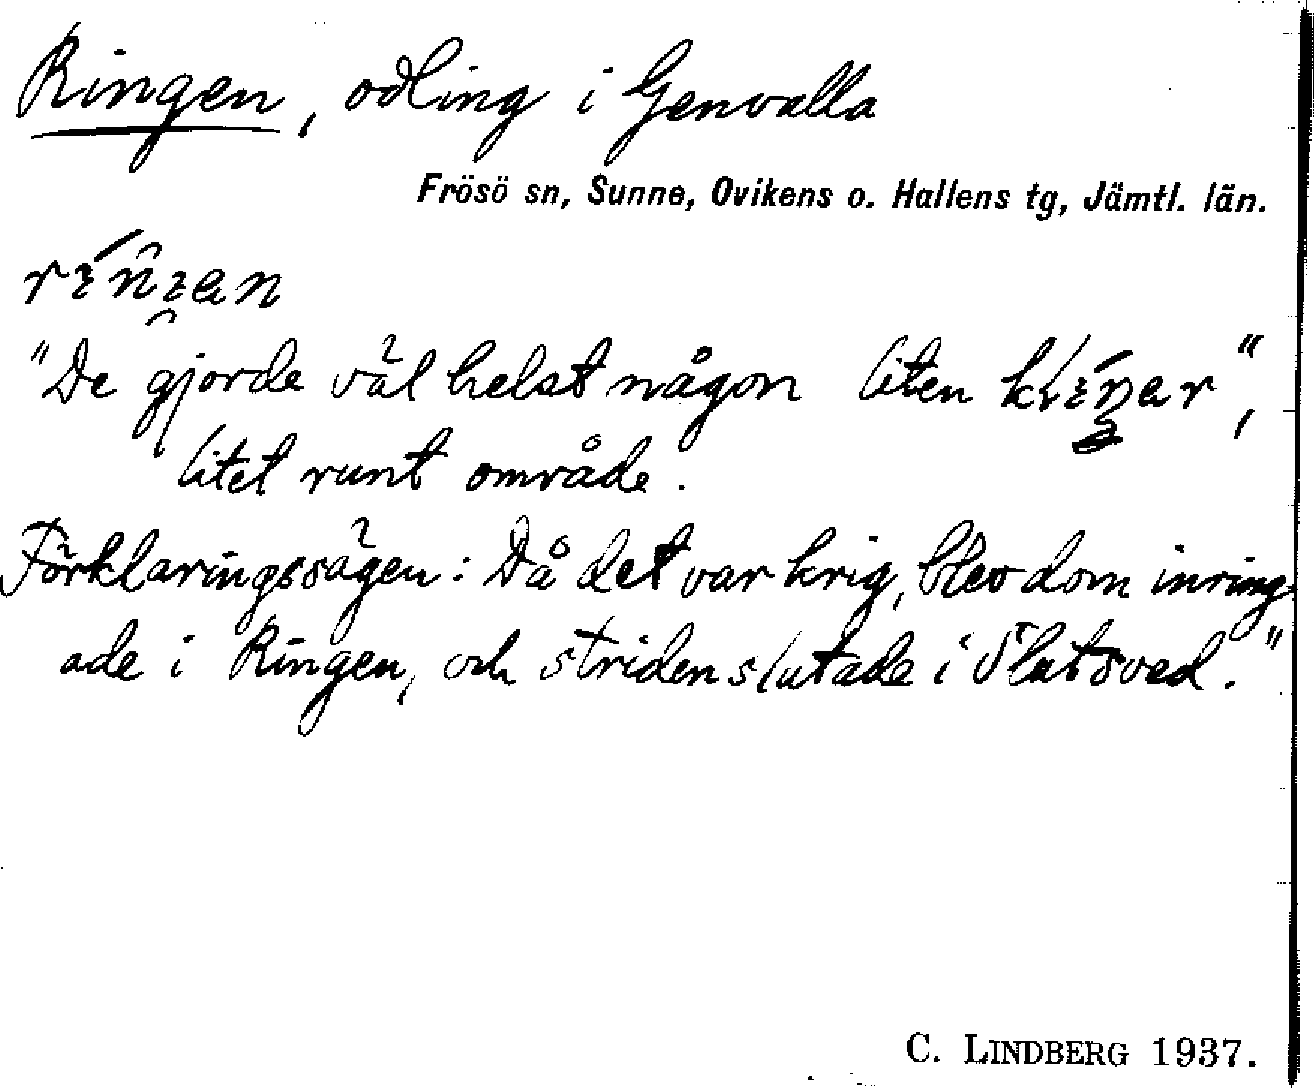 Ringen, odling i Genvalla
Frösö sn, Sunne, Ovikens o. Hallens tg, Jämtl. län.
"De gjorde väl helst någon liten
litet runt område.
Förklaringssägen: Då det var krig, blev dom inring-
ade i Ringen, och striden slutade i Slutsved."
C. LINDBERG 1937.